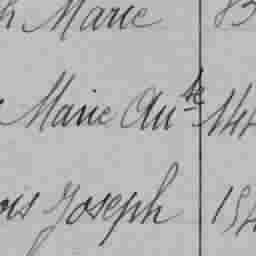 h Marie 83
Marie Ante 144
ois Joseph 154